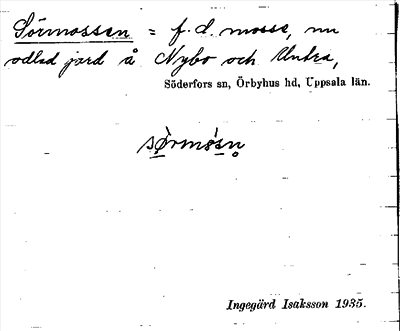 Sörmossen = f.d. mosse, nu
odlad jord å Nybo och Untra,
Söderfors sn, Örbyhus hd, Uppsala län.
sörmosn
Ingegärd Isaksson 1935.